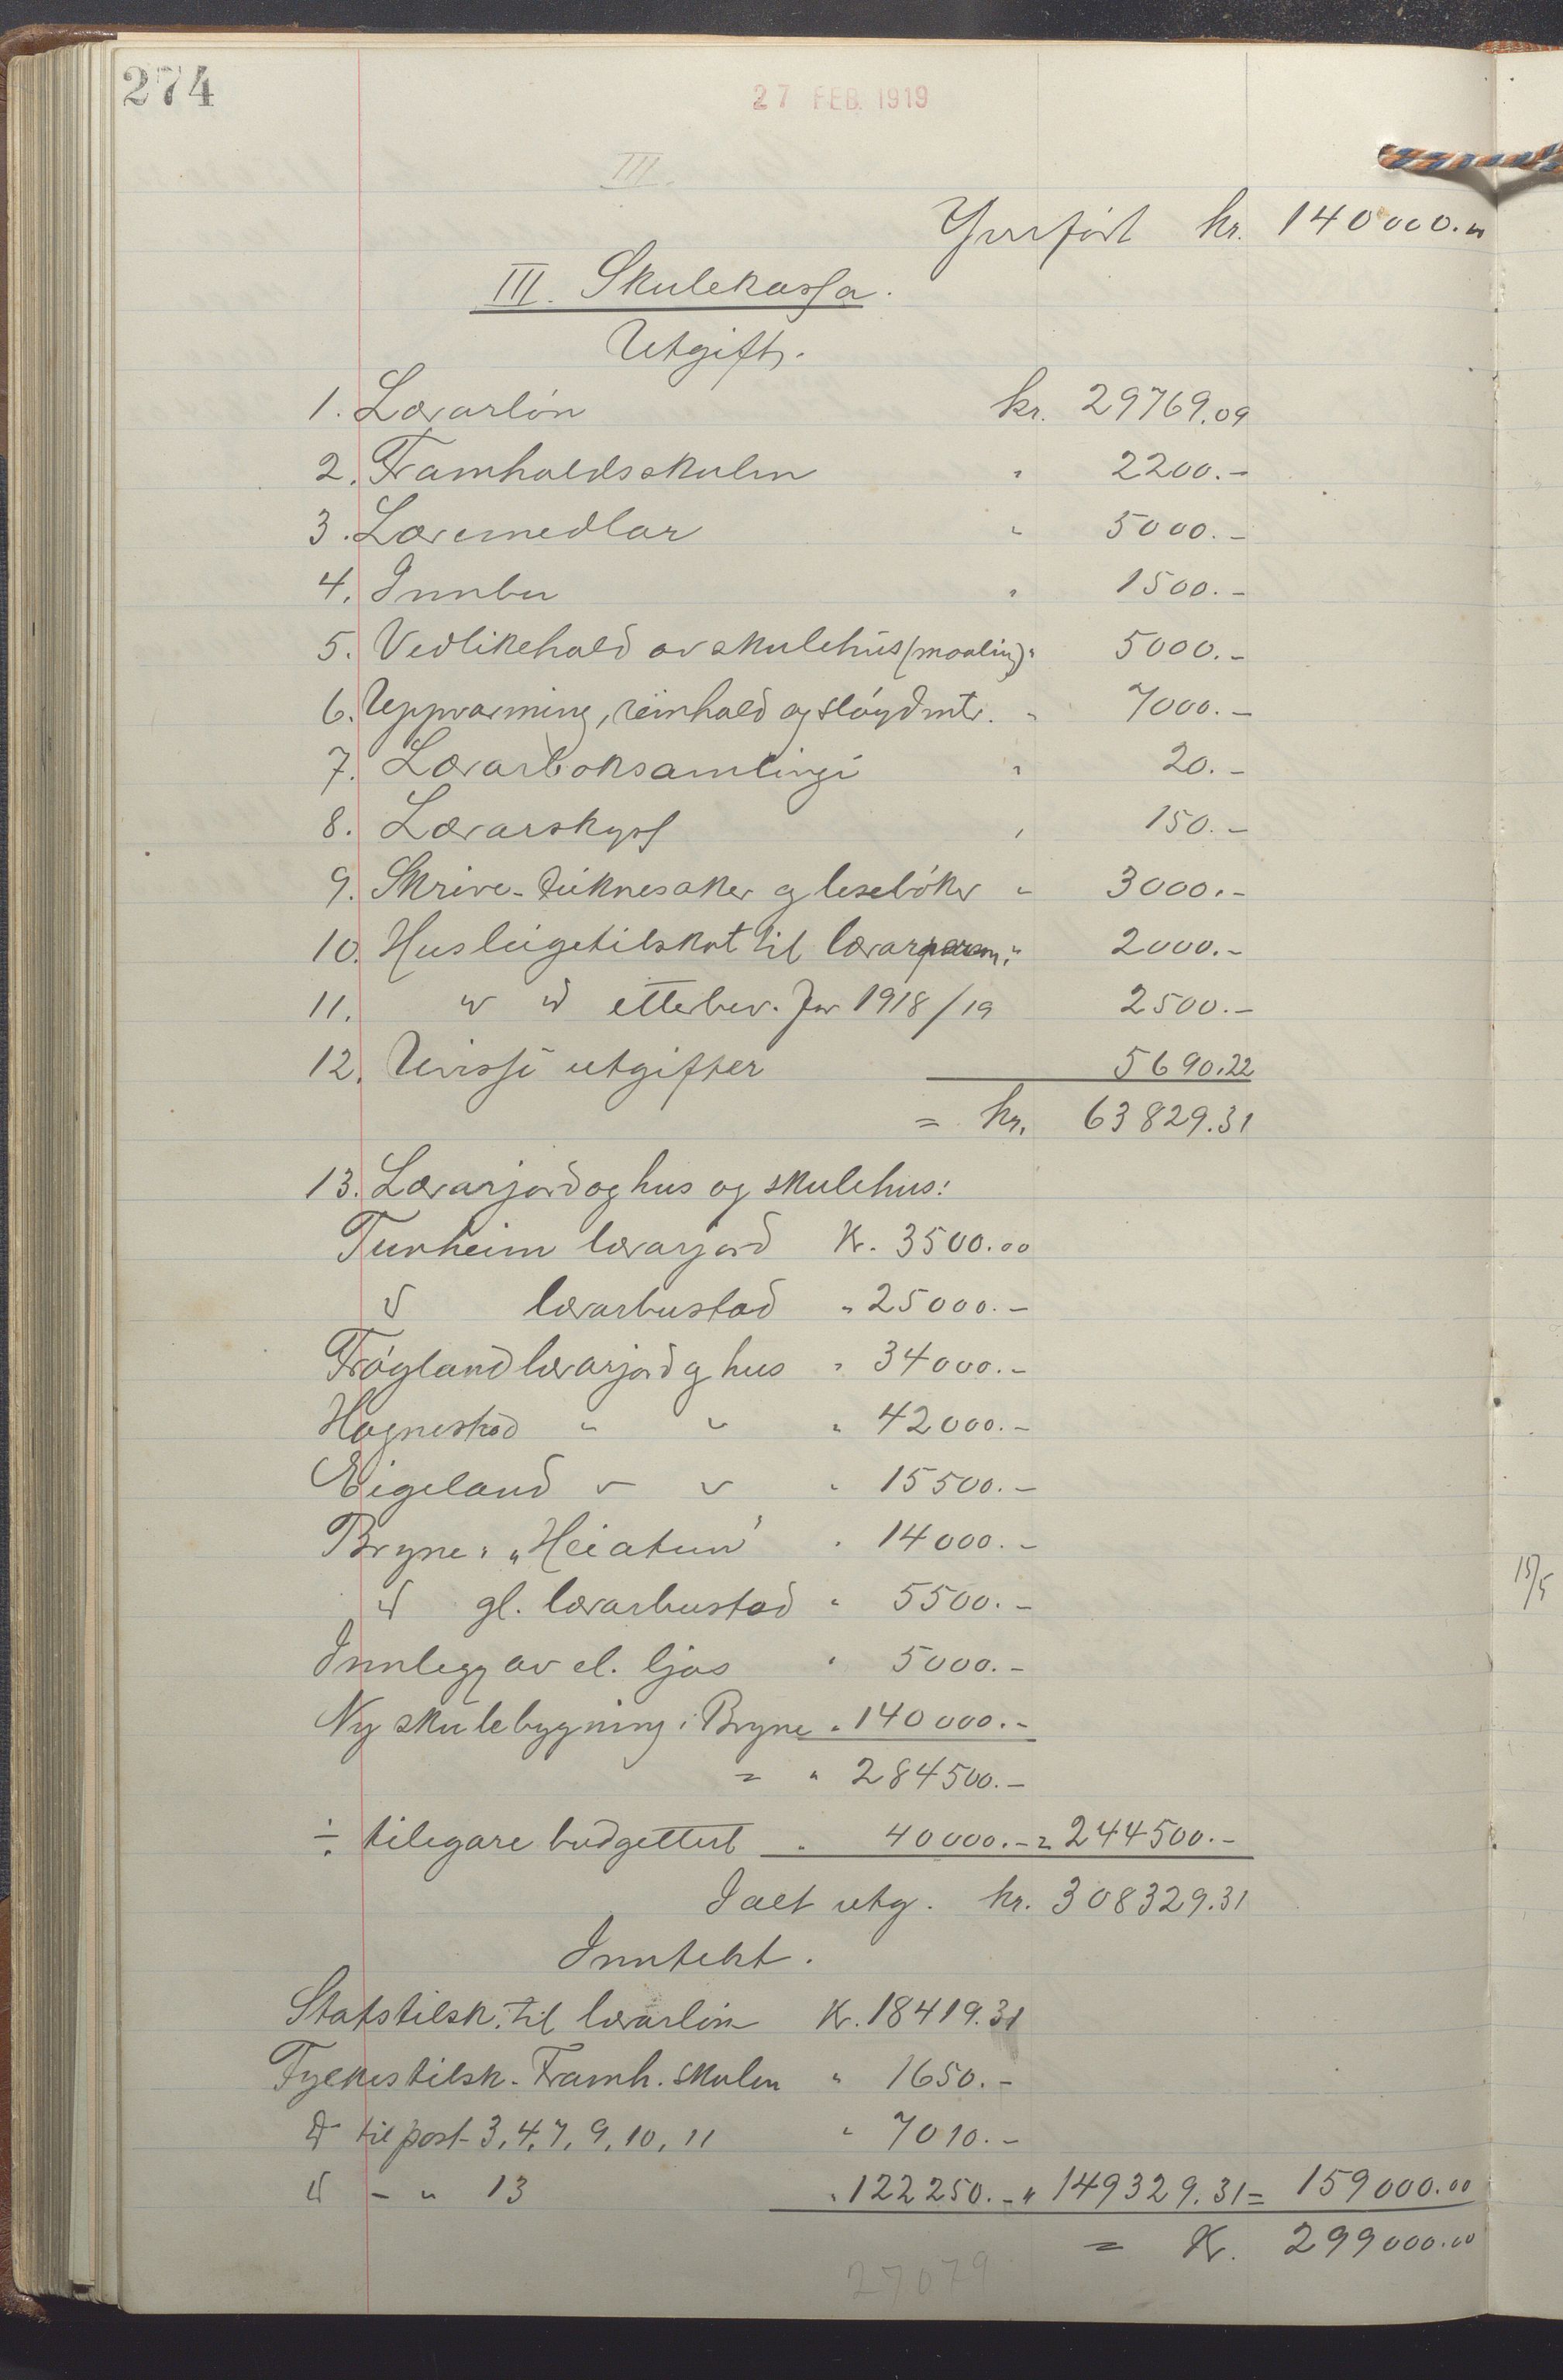 274
27 FEB. 1919
III.
Yverført kr. 140000.00
III. Skulekassa.
Utgift.
1. Lærarløn kr. 29769.09
2. Framhaldsskulen " 2200.-
3. Læremedlar " 5000.-
4. Innbu " 1500.-
5. Vedlikehald av skulehus (maaling) " 5000.-
6. Uppvarming, reinhald og sløydmtr. " 7000.-
7. Lærarboksamlingi " 20.-
8. Lærarskyss " 150.-
9. Skrive- teiknesaker og lesebøker " 3000.-
10. Husleigetilskot til lærarpersm. " 2000.-
11. " d etterbev. for 1918/19 2500.-
12. Uvisse utgifter 5690.22
= kr. 63829.31
13. Lærarjord og hus og skulehus:
Tunheim lærarjord Kr. 3500.00
d lærarbustad " 25000.-
Frøyland lærarjord og hus " 34000.-
Hognestad " " " 42000.-
Eigeland " " " 15500.-
Bryne: "Heiatun" " 14000.-
d gl. lærarbustad " 5500.-
Innlegg av el. ljos " 5000.-
Ny skulebygning i Bryne " 140000.-
= " 284500.-
÷ tilegare budgettert " 40000.- = 244500.-
I alt utg. kr. 308329.31
Inntekt.
Statstilsk. til lærarløn Kr. 18419.31
Fylkestilsk. Framh. skulen " 1650.-
d til post 3, 4, 7, 9, 10, 11 " 7010.-
d - " 13 " 122250.- " 149329.31 = 159000.00
= Kr. 299000.00
27079
15/5